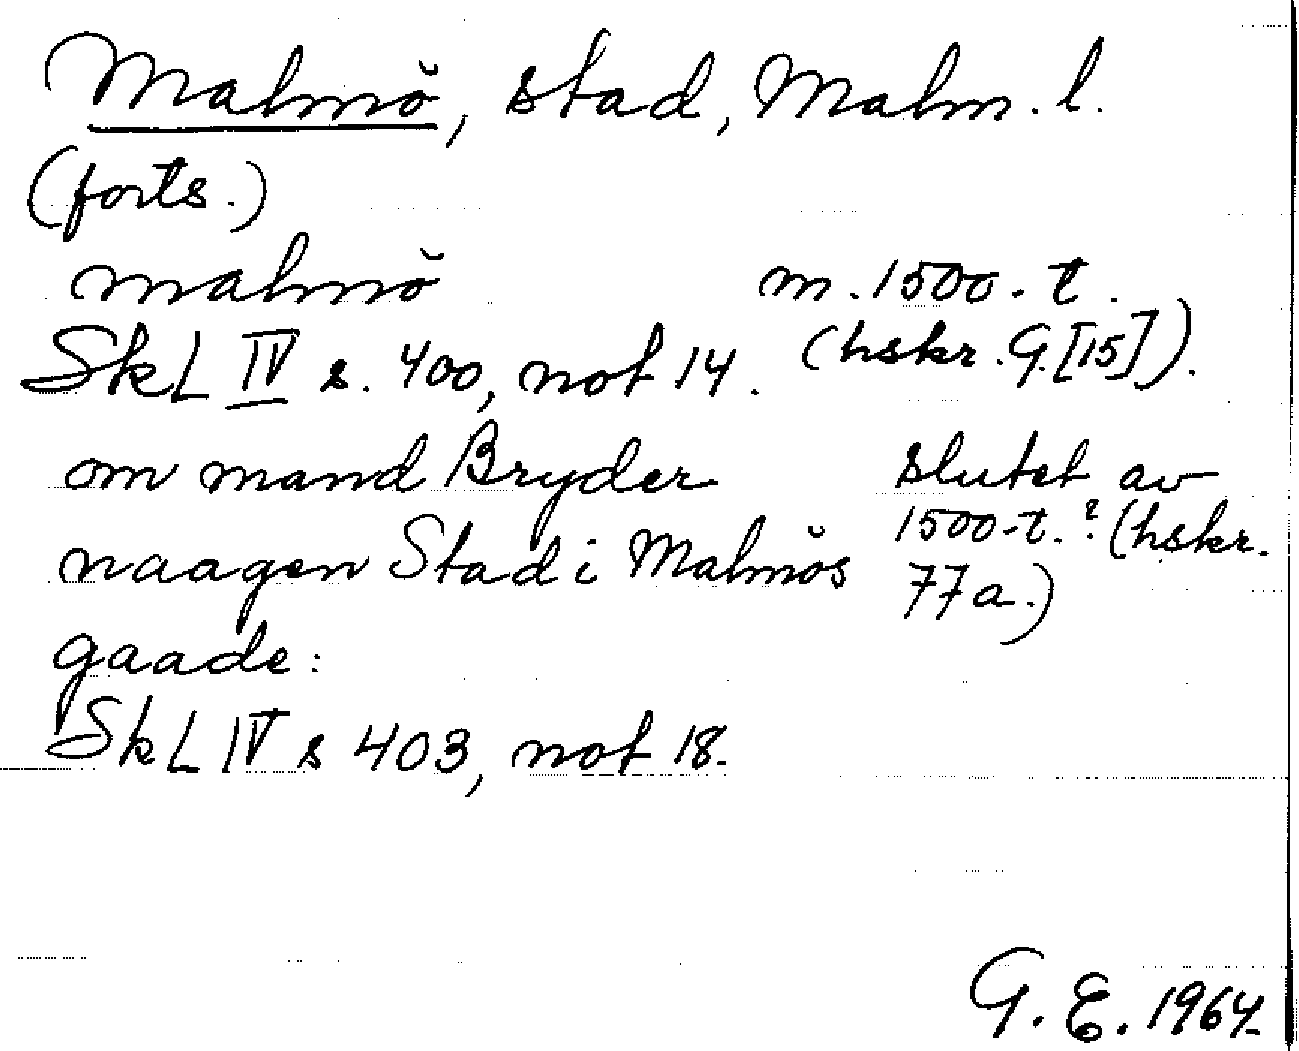 Malmö, stad, Malm. l.
(forts.)
malmö m. 1500-t.
SkL IV s. 400, not 14. (hskr. G.[15]).
om mand Bryder slutet av
naagen Stad i Malmös 1500-t.? (hskr.
gaade: 77a.)
SkL IV s 403, not 18.
G. E. 1964